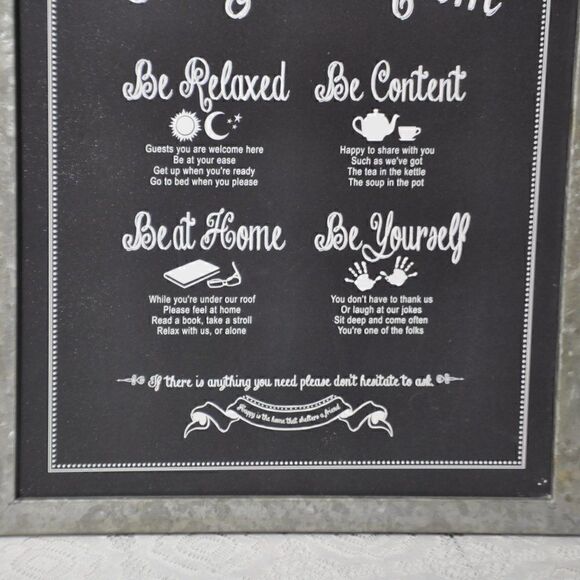 Be Relaxed
Guests you are welcome here
Be at your ease
Get up when you're ready
Go to bed when you please
Be Content
Happy to share with you
Such as we've got
The tea in the kettle
The soup in the pot
Be at Home
While you're under our roof
Please feel at home
Read a book, take a stroll
Relax with us, or alone
Be Yourself
You don't have to thank us
Or laugh at our jokes
Sit deep and come often
You're one of the folks
If there is anything you need please don't hesitate to ask.
Happy is the home that shelters a friend